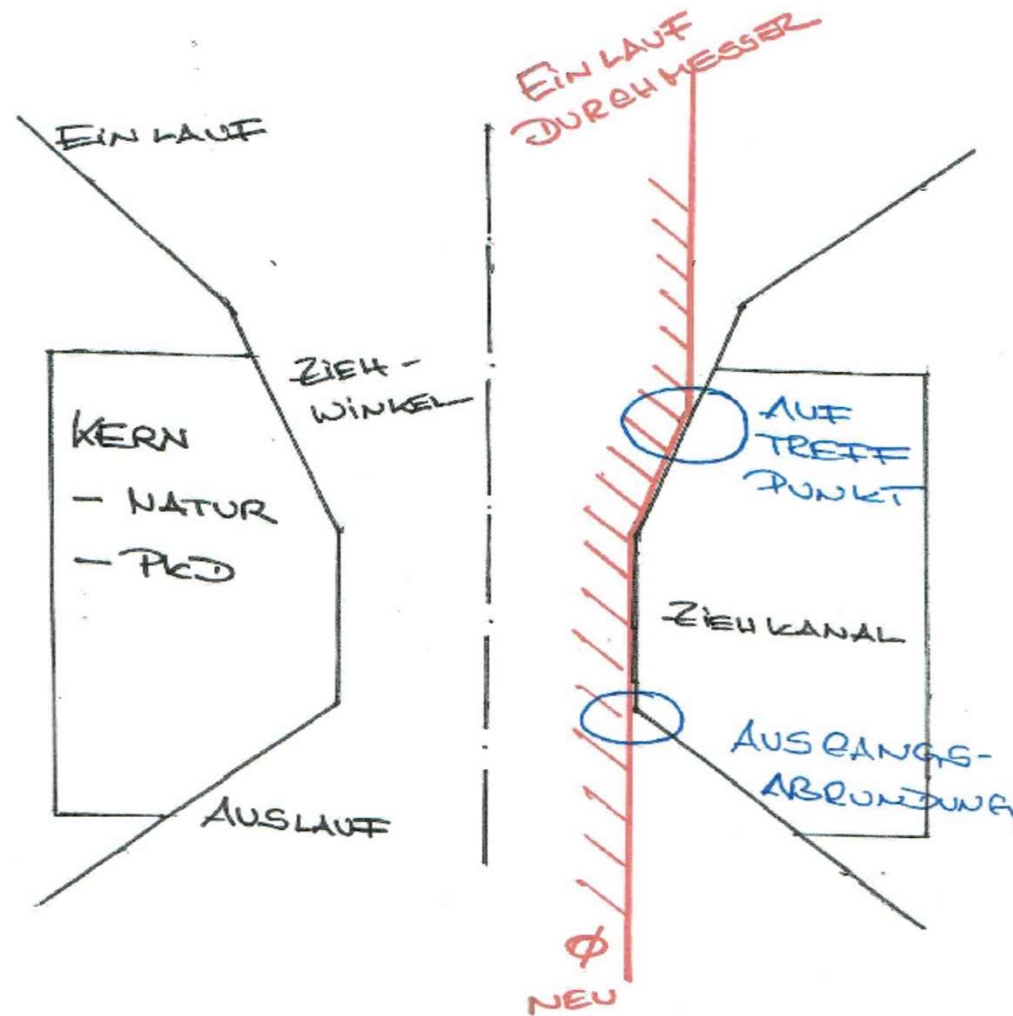 EINLAUF
DURCHMESSER
EINLAUF
ZIEH-
WINKEL
KERN
- NATUR
- PKD
AUF
TREFF
PUNKT
ZIEHKANAL
AUSGANGS-
ABRUNDUNG
AUSLAUF
Ø
NEU